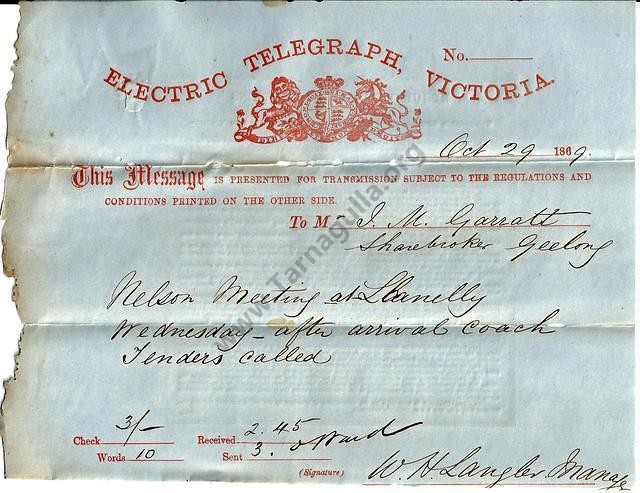 ELECTRIC TELEGRAPH, VICTORIA.
No.
Oct 29 1869.
This Message IS PRESENTED FOR TRANSMISSION SUBJECT TO THE REGULATIONS AND
CONDITIONS PRINTED ON THE OTHER SIDE.
To Mr J. M. Garratt
Sharebroker Geelong
Nelson Meeting at Llanelly
Wednesday - after arrival coach
Tenders called
Check 3/- Received 2.45
Words 10 Sent 3.
(Signature) W. H. Langler Manager
www.Tarnagulla.org